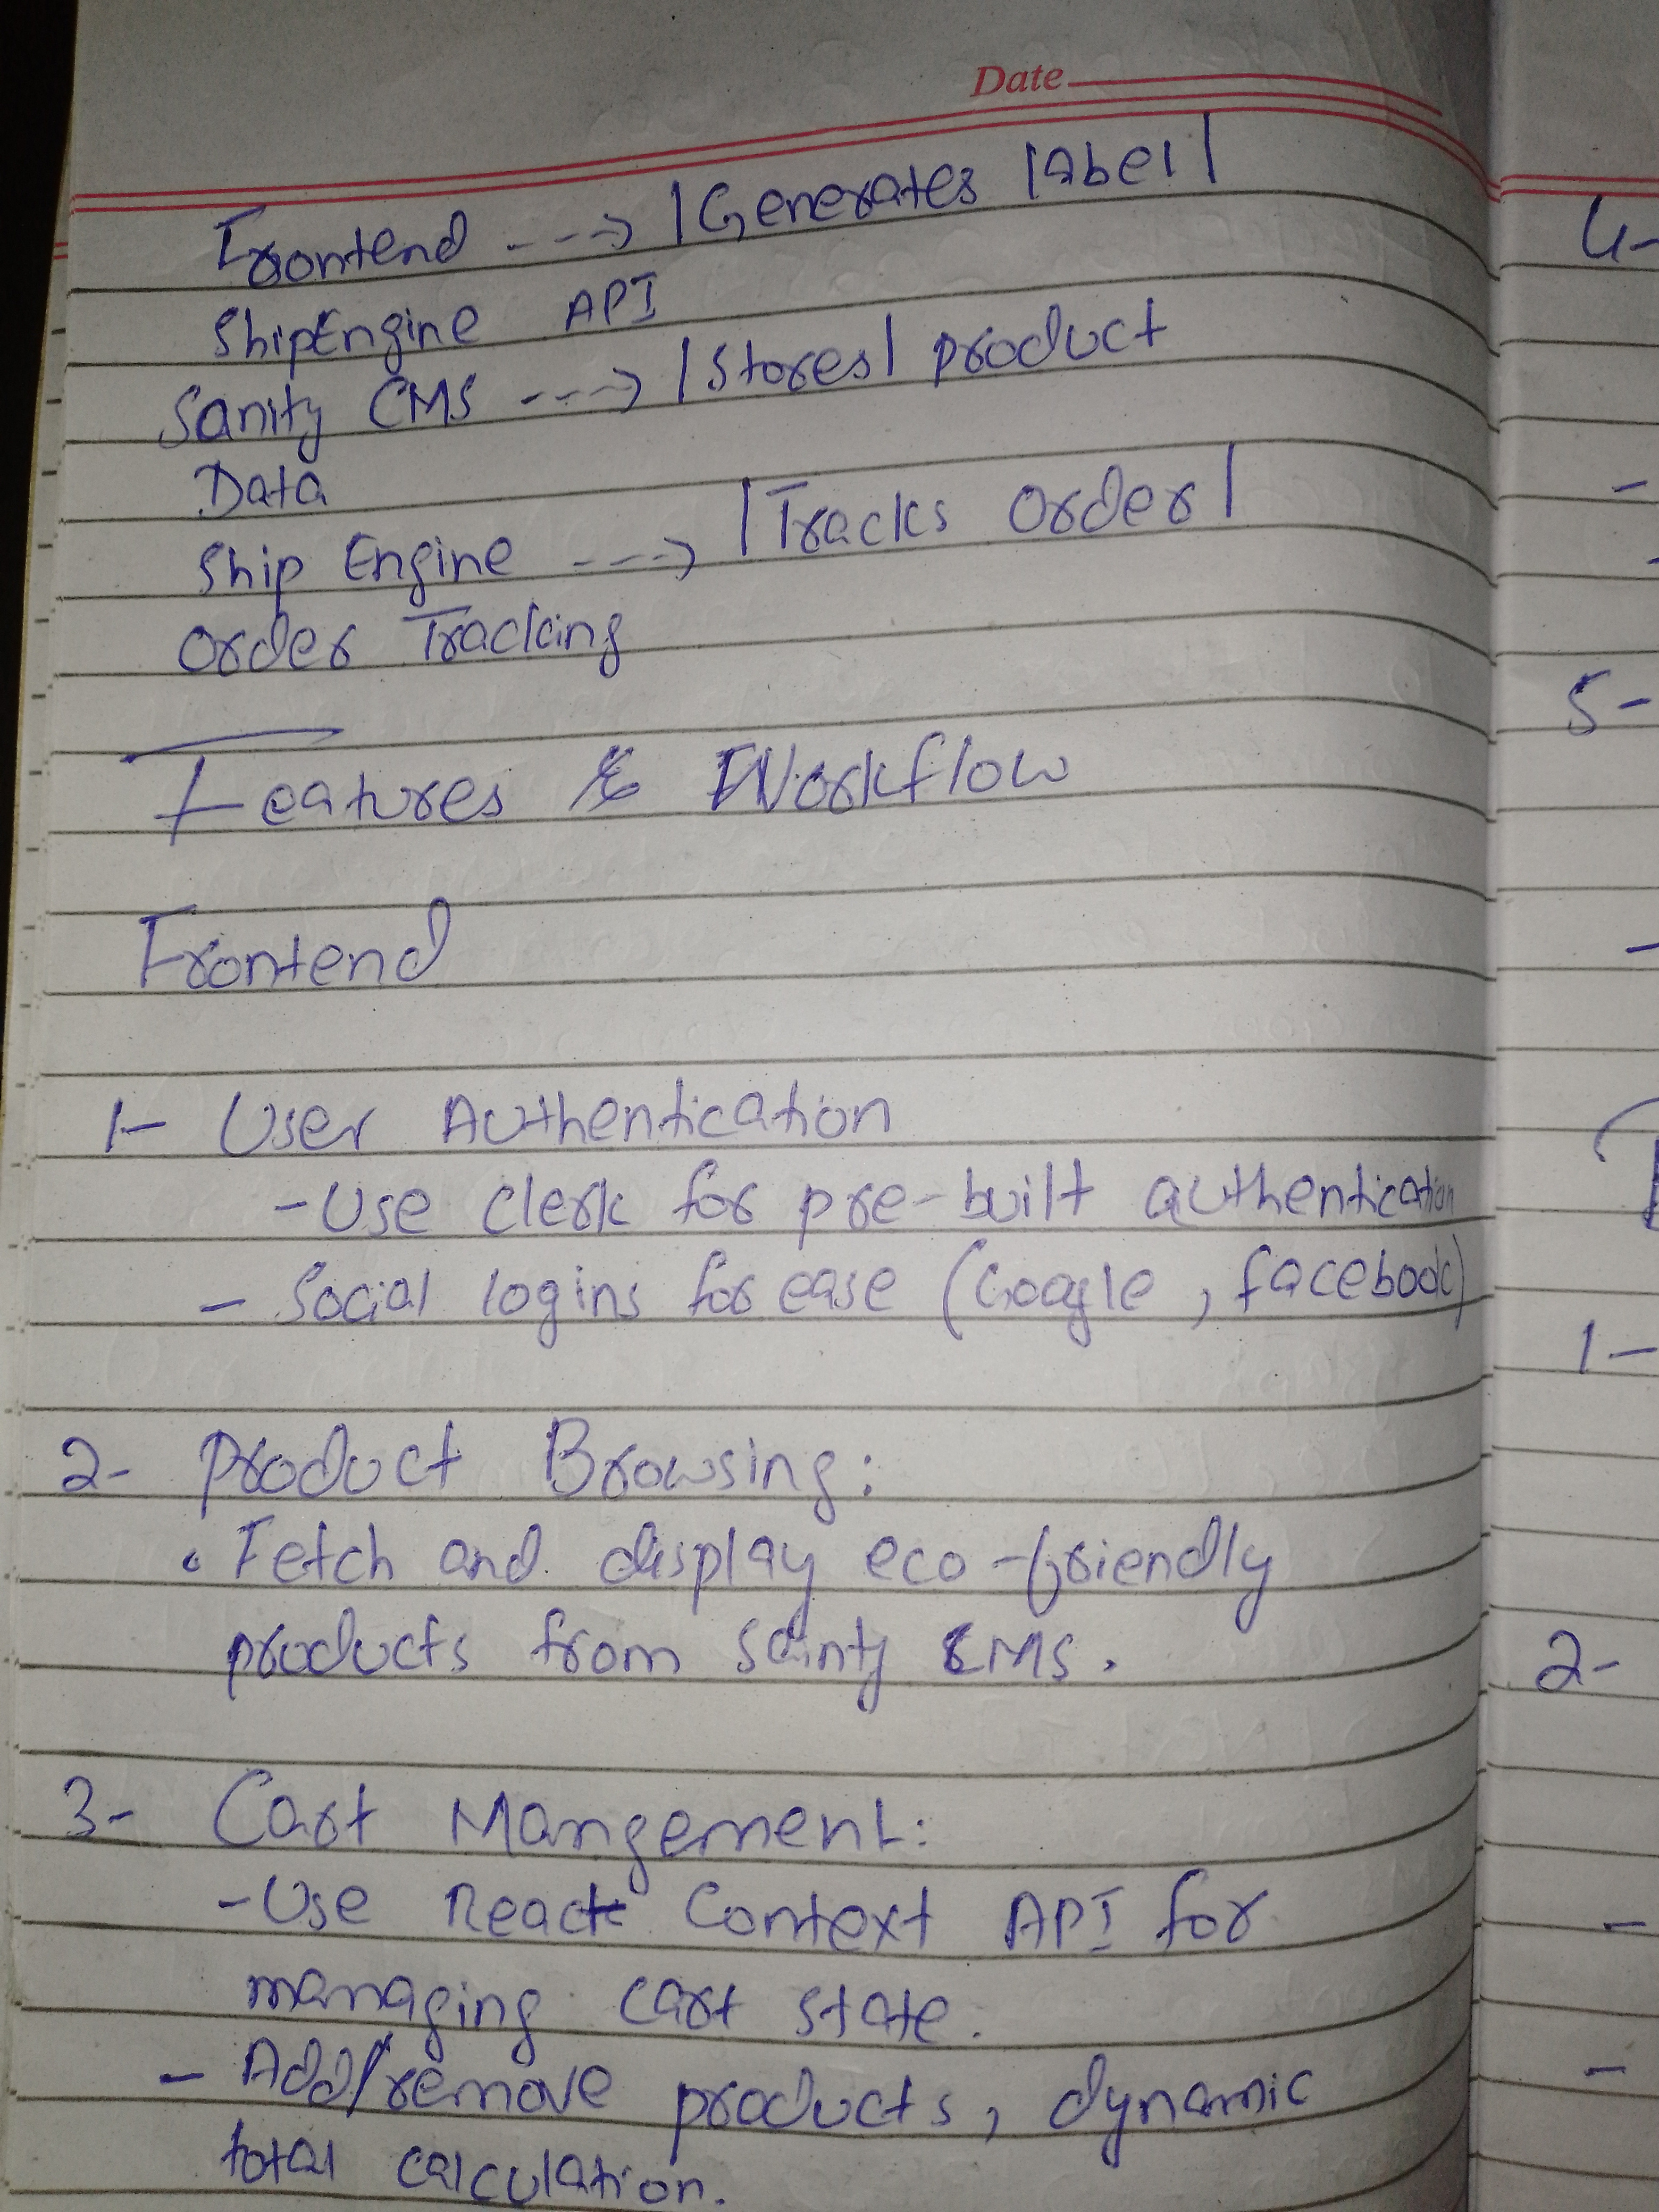 Date
Frontend ---> |Generates label|
ShipEngine API
Sanity CMS ---> |Stores| product
Data
Ship Engine ---> |Tracks Order|
Order Tracking
Features & Workflow
Frontend
1- User Authentication
- Use clerk for pre-built authentication
- Social logins for ease (Google, facebook)
2- Product Browsing:
• Fetch and display eco-friendly
products from Sainty CMS.
3- Cart Mangement:
- Use React Context API for
managing cart state.
- Add/remove products, dynamic
total calculation.
4-
-
5-
-
1-
2-
-
-